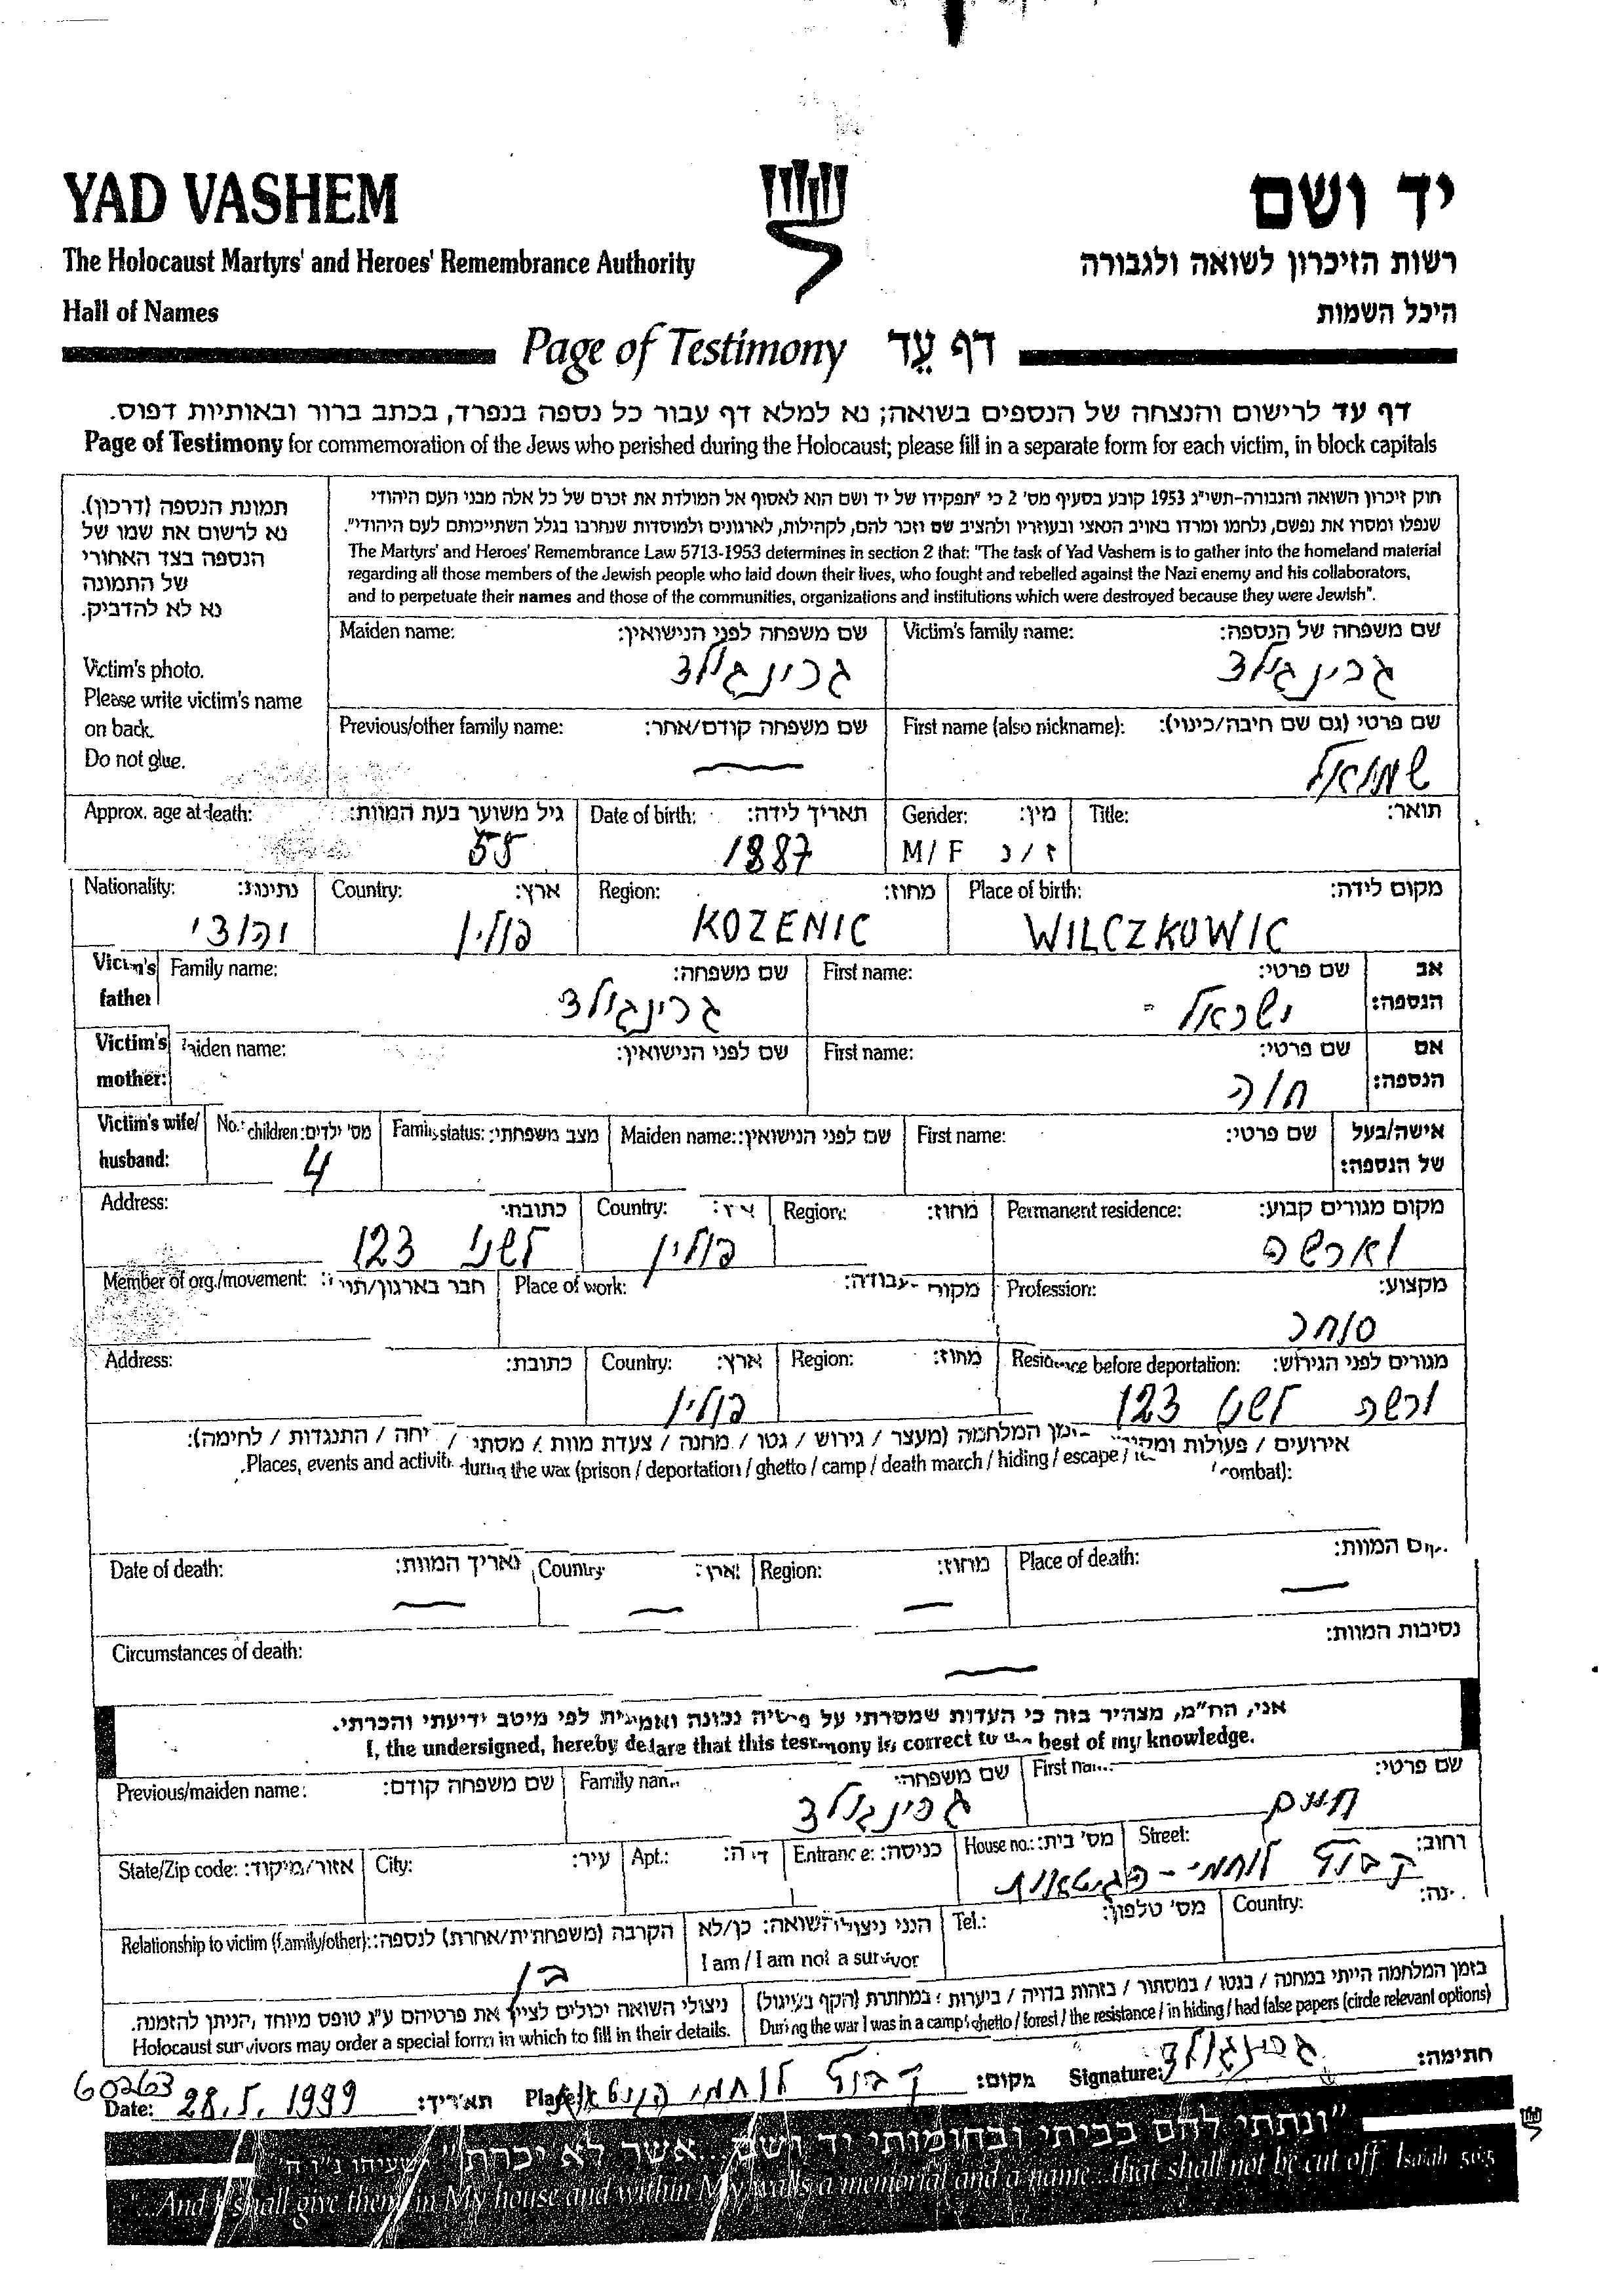 YAD VASHEM
יד ושם
The Holocaust Martyrs' and Heroes' Remembrance Authority
רשות הזיכרון לשואה ולגבורה
Hall of Names
היכל השמות
Page of Testimony דף עֵד
דף עד לרישום והנצחה של הנספים בשואה; נא למלא דף עבור כל נספה בנפרד, בכתב ברור ובאותיות דפוס.
Page of Testimony for commemoration of the Jews who perished during the Holocaust; please fill in a separate form for each victim, in block capitals
תמונת הנספה (דרכון).
נא לרשום את שמו של
הנספה בצד האחורי
של התמונה
נא לא להדביק.
Victim's photo.
Please write victim's name
on back.
Do not glue.
חוק זיכרון השואה והגבורה-תשי"ג 1953 קובע בסעיף מס' 2 כי "תפקידו של יד ושם הוא לאסוף אל המולדת את זכרם של כל אלה מבני העם היהודי
שנפלו ומסרו את נפשם, נלחמו ומרדו באויב הנאצי ובעוזריו ולהציב שם וזכר להם, לקהילות, לארגונים ולמוסדות שנחרבו בגלל השתייכותם לעם היהודי".
The Martyrs' and Heroes' Remembrance Law 5713-1953 determines in section 2 that: "The task of Yad Vashem is to gather into the homeland material
regarding all those members of the Jewish people who laid down their lives, who fought and rebelled against the Nazi enemy and his collaborators,
and to perpetuate their names and those of the communities, organizations and institutions which were destroyed because they were Jewish".
Victim's family name: שם משפחה של הנספה:
גרינגולד
Maiden name: שם משפחה לפני הנישואין:
גרינגולד
First name (also nickname): שם פרטי (גם שם חיבה/כינוי):
שמואל
Previous/other family name: שם משפחה קודם/אחר:
Title: תואר:
Gender: מין:
M / F ז / נ
Date of birth: תאריך לידה:
1887
Approx. age at death: גיל משוער בעת המוות:
55
Place of birth: מקום לידה:
WILCZKOWIC
Region: מחוז:
KOZENIC
Country: ארץ:
פולין
Nationality: נתינות:
יהודי
אב הנספה:
First name: שם פרטי:
ישראל
Family name: שם משפחה:
גרינגולד
Victim's father
אם הנספה:
First name: שם פרטי:
חוה
Maiden name: שם לפני הנישואין:
Victim's mother:
אישה/בעל של הנספה:
First name: שם פרטי:
Maiden name: שם לפני הנישואין:
Family status: מצב משפחתי:
No. children: מס' ילדים:
4
Victim's wife/ husband:
Permanent residence: מקום מגורים קבוע:
וארשה
Region: מחוז:
Country:
פולין
Address: כתובת:
לשנו 123
Profession: מקצוע:
סוחר
Place of work: מקום עבודה:
Member of org./movement: חבר בארגון/תנועה:
Residence before deportation: מגורים לפני הגירוש:
ורשה לשנו 123
Region: מחוז:
Country: ארץ:
פולין
Address: כתובת:
אירועים / פעולות ומקומות בזמן המלחמה (מעצר / גירוש / גטו / מחנה / צעדת מוות / מסתור / בריחה / התנגדות / לחימה):
Places, events and activities during the war (prison / deportation / ghetto / camp / death march / hiding / escape / combat):
Place of death: מקום המוות:
Region: מחוז:
Country ארץ:
Date of death: תאריך המוות:
Circumstances of death: נסיבות המוות:
אני, הח"מ, מצהיר בזה כי העדות שמסרתי על פרטיה נכונה ואמיתית לפי מיטב ידיעתי והכרתי.
I, the undersigned, hereby declare that this testimony is correct to the best of my knowledge.
First name: שם פרטי:
חיים
Family name: שם משפחה:
גרינגולד
Previous/maiden name: שם משפחה קודם:
Street: רחוב:
קבוץ לוחמי-הגיטאות
House no.: מס' בית:
Entrance: כניסה:
Apt.: דירה:
City: עיר:
State/Zip code: אזור/מיקוד:
Country:
Tel.: מס' טלפון:
הנני ניצול השואה: כן/לא
I am / I am not a survivor
Relationship to victim (family/other): הקרבה (משפחתית/אחרת) לנספה:
בן
בזמן המלחמה הייתי במחנה / בגטו / במסתור / בזהות בדויה / ביערות / במחתרת (הקף בעיגול)
During the war I was in a camp / ghetto / forest / the resistance / in hiding / had false papers (circle relevant options)
ניצולי השואה יכולים לציין את פרטיהם ע"ג טופס מיוחד, הניתן להזמנה.
Holocaust survivors may order a special form in which to fill in their details.
Signature: חתימה:
גרינגולד
Place מקום:
קבוץ לוחמי הגיטאות
60263
Date: 28.5.1999 תאריך:
"ונתתי להם בביתי ובחומותי יד ושם...אשר לא יכרת" ישעיהו נ"ו ה
"...And I shall give them in My house and within My walls a memorial and a name...that shall not be cut off Isaiah 56:5